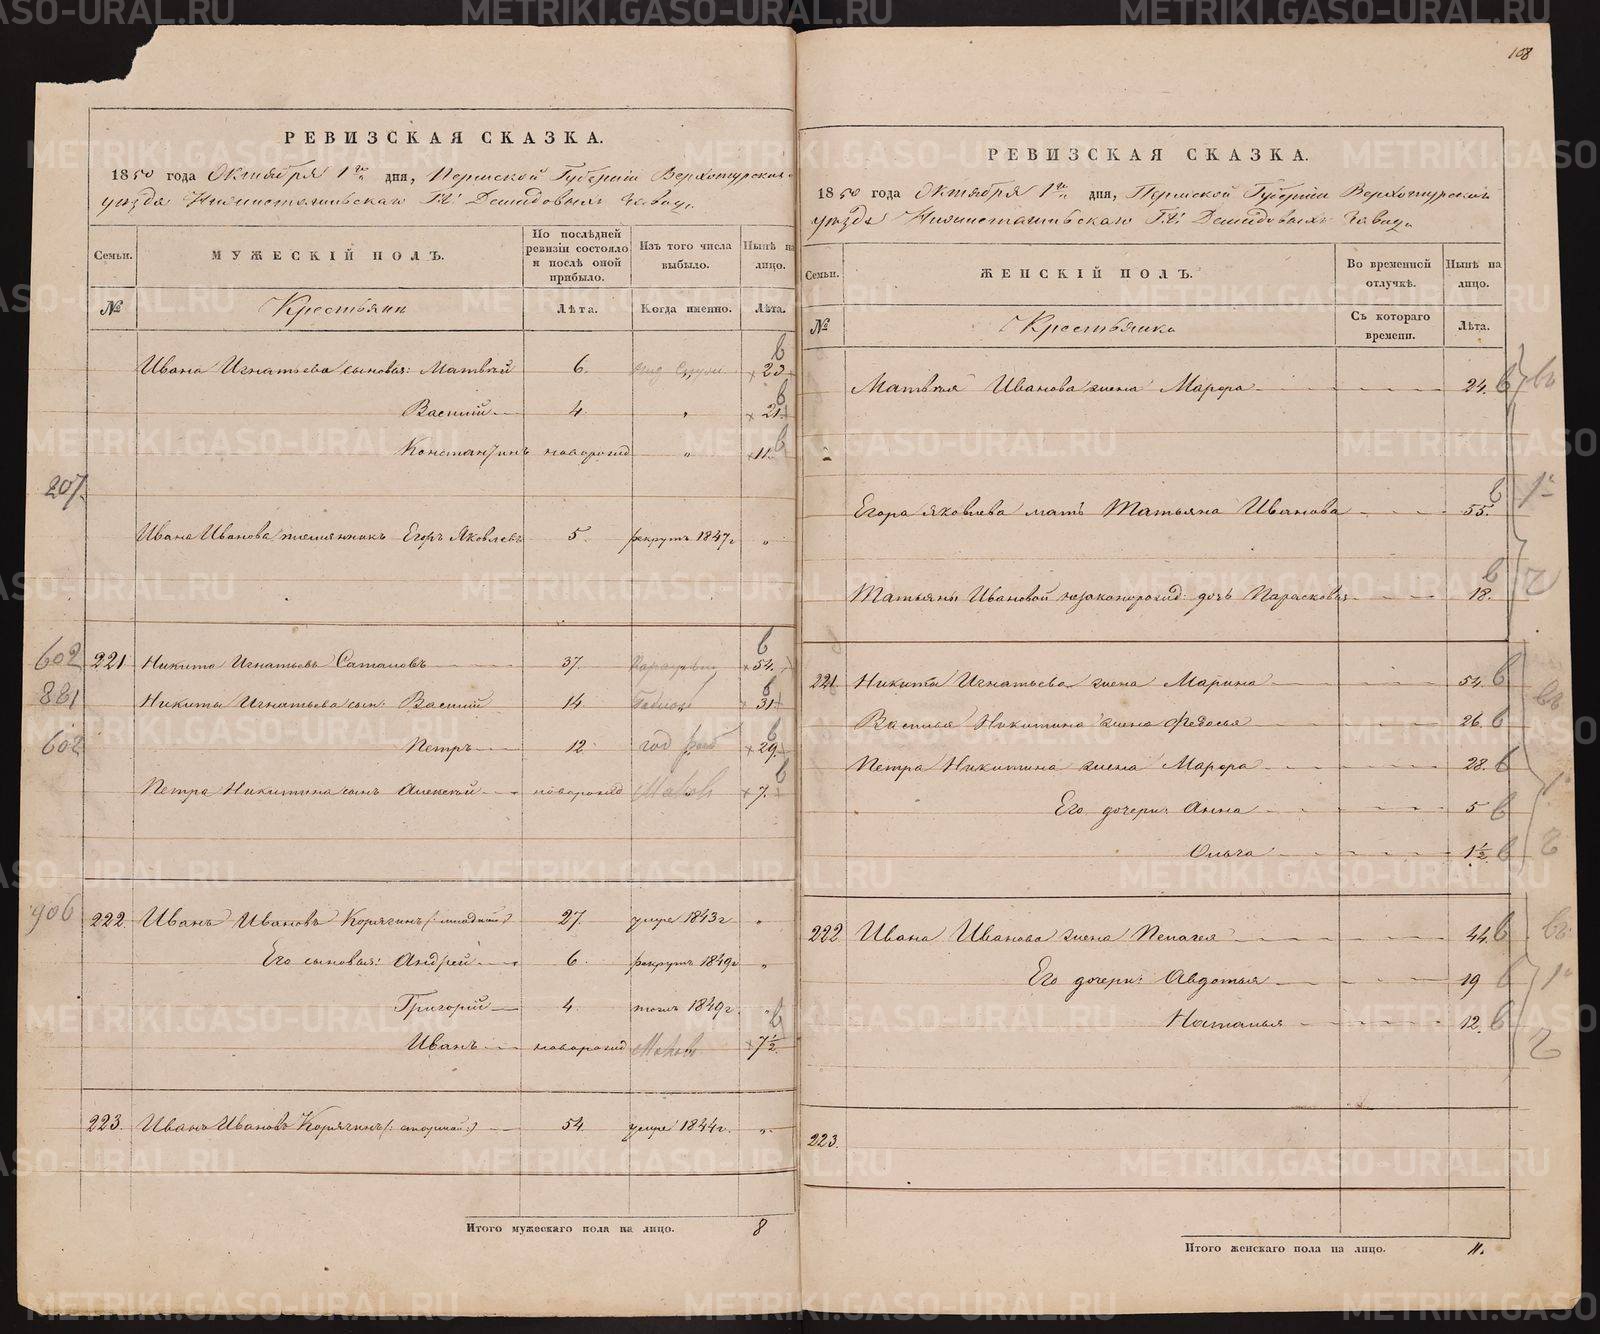 108
РЕВИЗСКАЯ СКАЗКА.
1850 года Октября 1го дня, Пермской Губерніи Верхотурскаго
уѣзда Нижнетагильскаго Г.г. Демидовыхъ завода
Семьи. МУЖЕСКІЙ ПОЛЪ. По послѣдней ревизіи состояло и послѣ оной прибыло. Изъ того числа выбыло. Нынѣ на лицо.
№ Крестьяне Лѣта. Когда именно. Лѣта.
Ивана Игнатьева сыновья: Матвѣй 6. 23
Василій 4. " 21
Константинъ новорожд " 11
207
Ивана Иванова племянникъ Егоръ Яковлевъ 5. рекрутъ 1847г "
602 221 Никита Игнатьевъ 37. 54.
881 Никиты Игнатьева сын: Василій 14. 31
602 Петръ 12. 29.
Петра Никитина сынъ Алексѣй новорожд 7.
906 222 Иванъ Ивановъ Корягинъ (: младшій :) 27. умре 1843г "
Его сыновья: Андрей 6. рекрутъ 1849г "
Григорій 4. тожъ 1849г "
Иванъ новорожд 7½
223. Иванъ Ивановъ Корягинъ (: старшій :) 54. умре 1844г. "
Итого мужескаго пола на лицо. 8
РЕВИЗСКАЯ СКАЗКА.
1850 года Октября 1го дня, Пермской Губерніи Верхотурскаго
уѣзда Нижнетагильскаго Г.г. Демидовыхъ завода
Семьи. ЖЕНСКІЙ ПОЛЪ. Во временной отлучкѣ. Нынѣ на лицо.
№ Крестьянка Съ котораго времени. Лѣта.
Матвѣя Иванова жена Марфа 24.
Егора Яковлева мать Татьяна Иванова 55.
Татьяны Ивановой незаконорожд: дочь Парасковья 18.
221. Никиты Игнатьева жена Марина 54.
Василья Никитина жена Федосья 26.
Петра Никитина жена Марфа 28.
Его дочери: Анна 5
Ольга 1½
222. Ивана Иванова жена Пелагея 44.
Его дочери: Авдотья 19
Наталья 12.
223.
Итого женскаго пола на лицо. 11.
METRIKI.GASO-URAL.RU